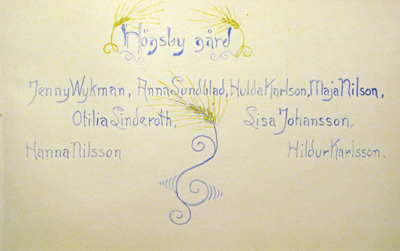 Högsby gård
Jenny Wykman, Anna Sundblad, Hulda Karlson, Maja Nilson,
Otilia Linderoth, Lisa Johansson,
Hanna Nilsson Hildur Karlsson.